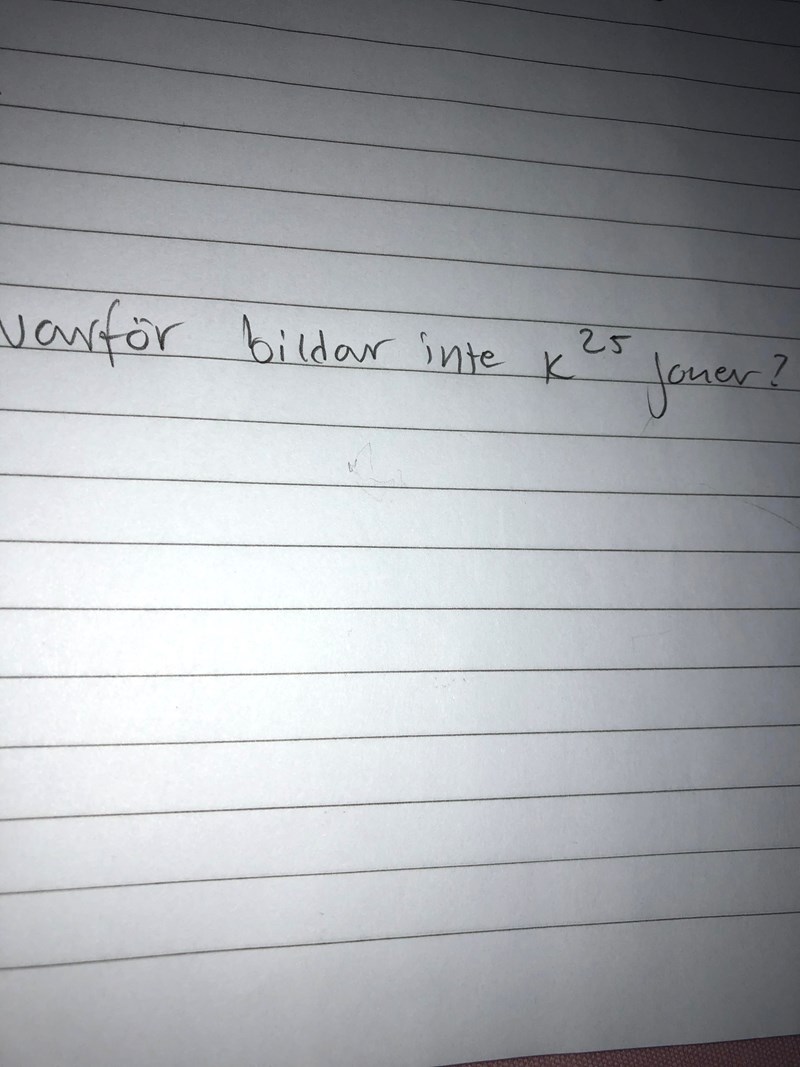 varför bildar inte K²⁵ joner?